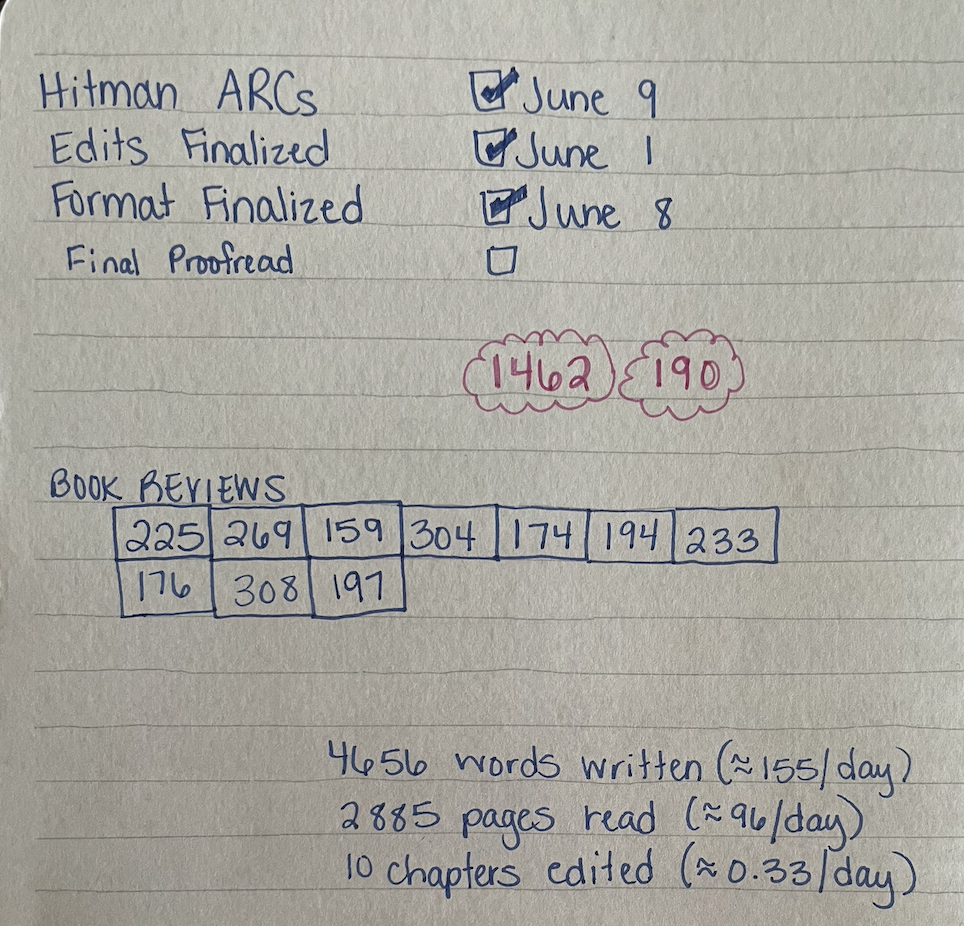 Hitman ARCs ☑ June 9
Edits Finalized ☑ June 1
Format Finalized ☑ June 8
Final Proofread ☐
1462 190
BOOK REVIEWS
225 269 159 304 174 194 233
176 308 197
4656 words written (≈155/day)
2885 pages read (≈96/day)
10 chapters edited (≈0.33/day)